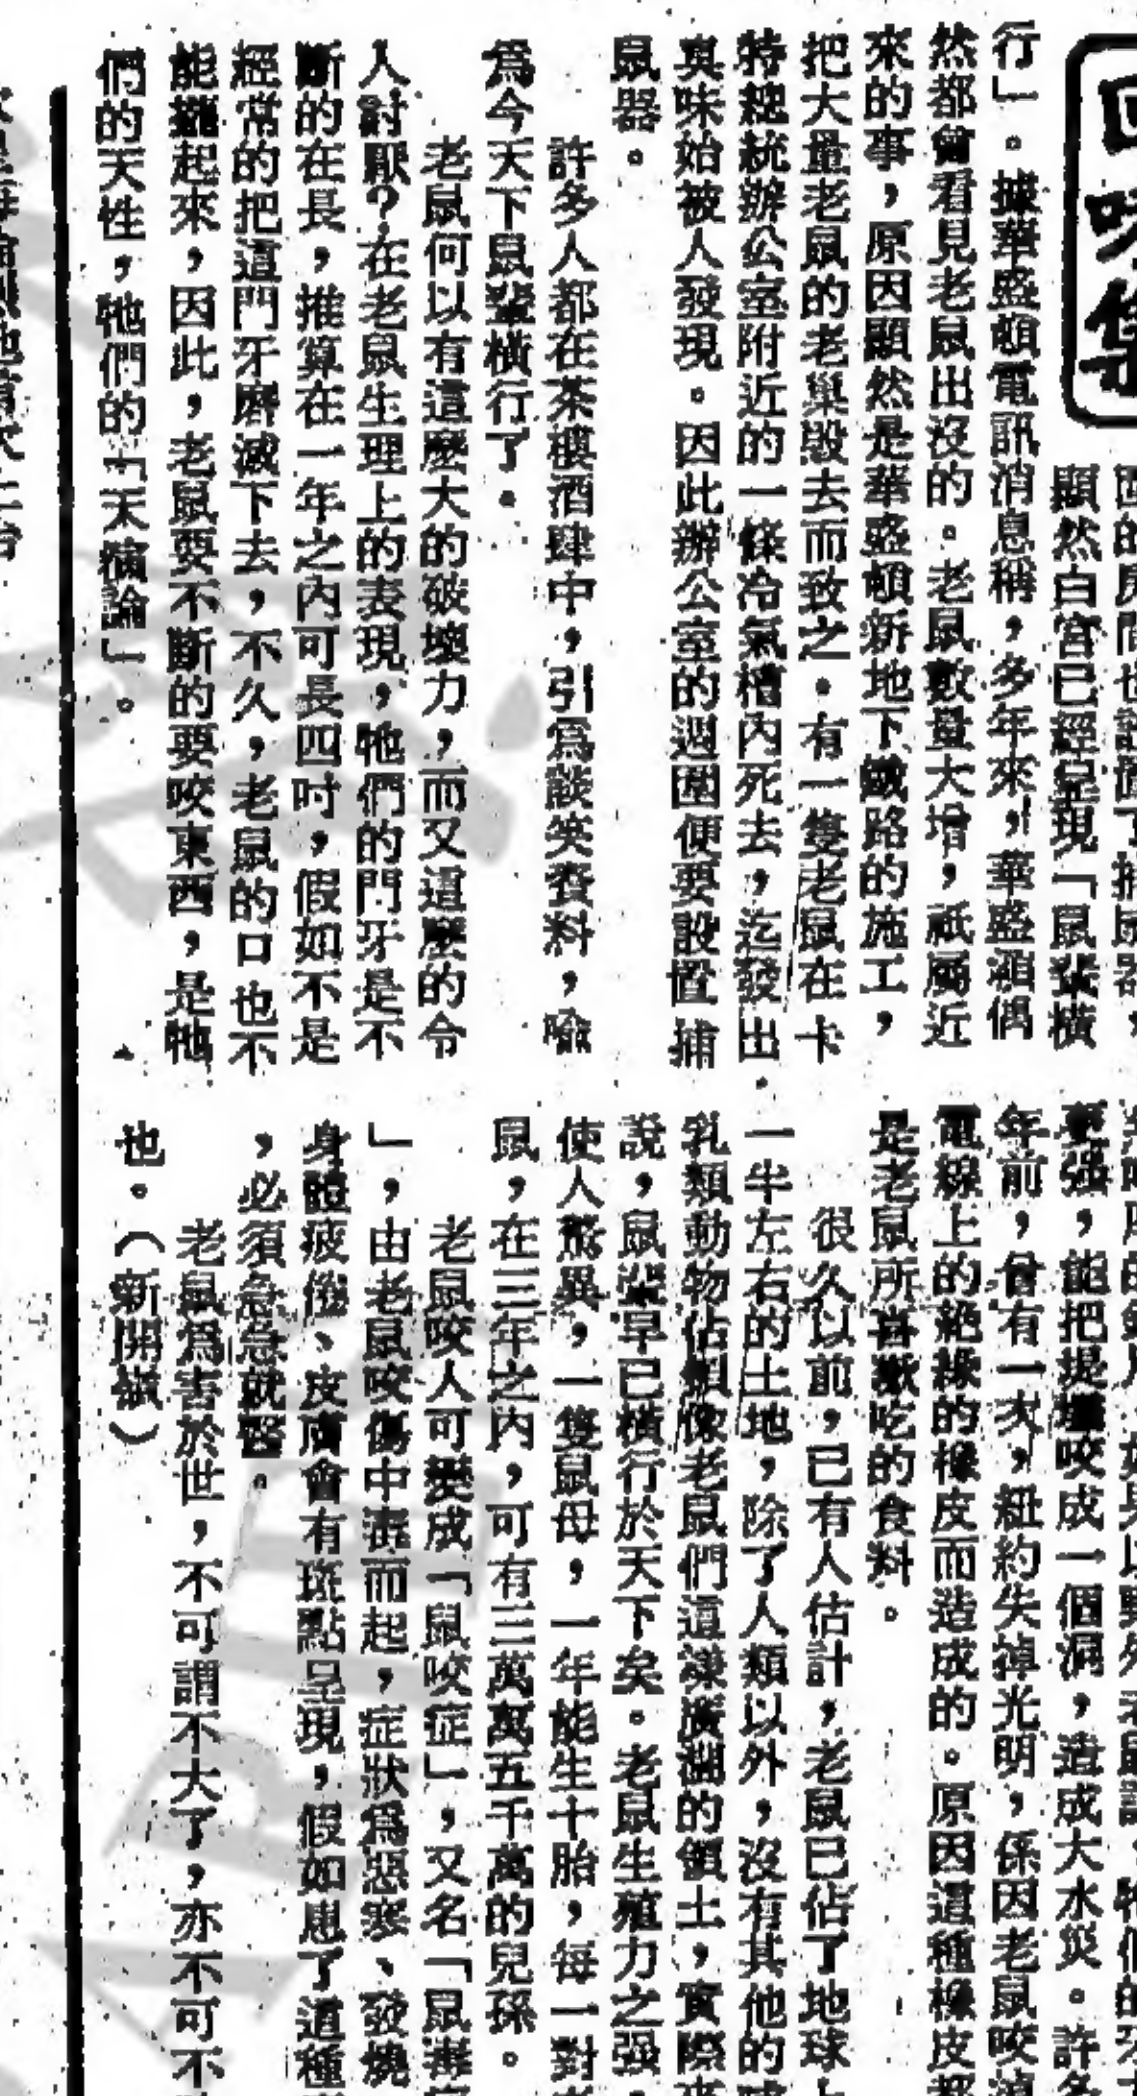 顯然白宮已經呈現「鼠輩橫
行」。據華盛頓電訊消息稱，多年來，華盛頓偶
然都曾看見老鼠出沒的。老鼠數量大增，祇屬近
來的事，原因顯然是華盛頓新地下鐵路的施工，
把大量老鼠的老巢毀去而致之。有一隻老鼠在卡
特總統辦公室附近的一條冷氣槽內死去，迄發出
臭味始被人發現。因此辦公室的週圍便要設置捕
鼠器。
許多人都在茶樓酒肆中，引爲談笑資料，喻
爲今天下鼠輩橫行了。
老鼠何以有這麼大的破壞力，而又這麼的令
人討厭？在老鼠生理上的表現，牠們的門牙是不
斷的在長，推算在一年之內可長四吋，假如不是
經常的把這門牙磨滅下去，不久，老鼠的口也不
能攏起來，因此，老鼠要不斷的要咬東西，是牠
們的天性，牠們的「天演論」。
更强，能把提壩咬成一個洞，造成大水災。許多
年前，曾有一次，紐約失掉光明，係因老鼠咬
電線上的絕緣的橡皮而造成的。原因這種橡皮
是老鼠所喜歡吃的食料。
很久以前，已有人估計，老鼠已佔了地球上
一半左右的土地，除了人類以外，沒有其他的
乳類動物佔領像老鼠們這樣廣濶的領土，實際
說，鼠輩早已橫行於天下矣。老鼠生殖力之强，
使人驚異，一隻鼠母，一年能生十胎，每一對
鼠，在三年之內，可有三萬萬五千萬的兒孫。
老鼠咬人可變成「鼠咬症」，又名「鼠毒
」，由老鼠咬傷中毒而起，症狀爲惡寒、發燒
身體疲倦、皮膚會有斑點呈現，假如患了這種
，必須急急就醫。
老鼠爲害於世，不可謂不大了，亦不可不
也。（新開嶺）